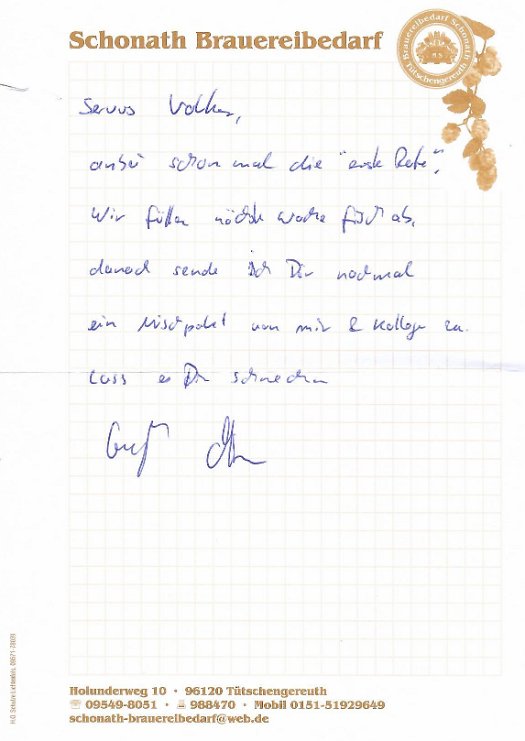 Schonath Brauereibedarf
Brauereibedarf Schonath
Tütschengereuth
Servus Volker,
anbei schon mal die "erste Rate".
Wir füllen nächste Woche frisch ab,
danach sende ich Dir nochmal
ein Mischpaket von mir & Kollege zu.
Lass es Dir schmecken
Gruß
Holunderweg 10 · 96120 Tütschengereuth
☏ 09549-8051 · 988470 · Mobil 0151-51929649
schonath-brauereibedarf@web.de